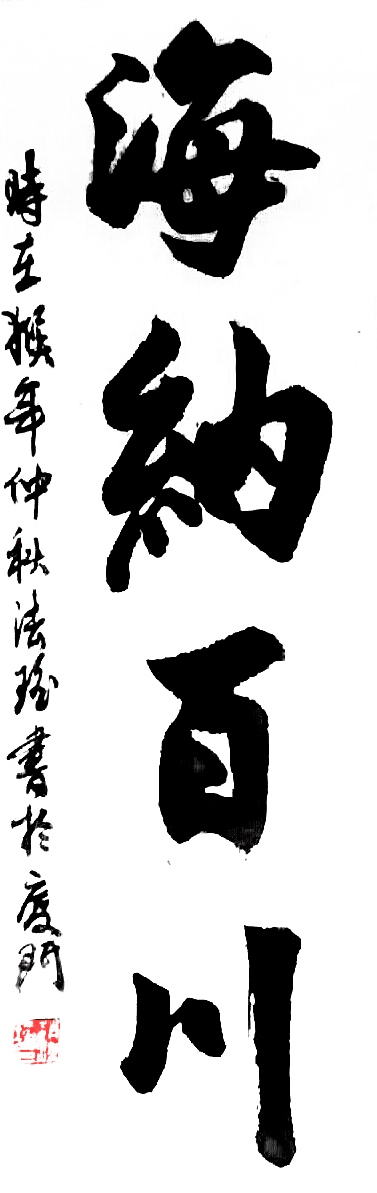 海納百川
時在猴年仲秋法瑤書於廈門